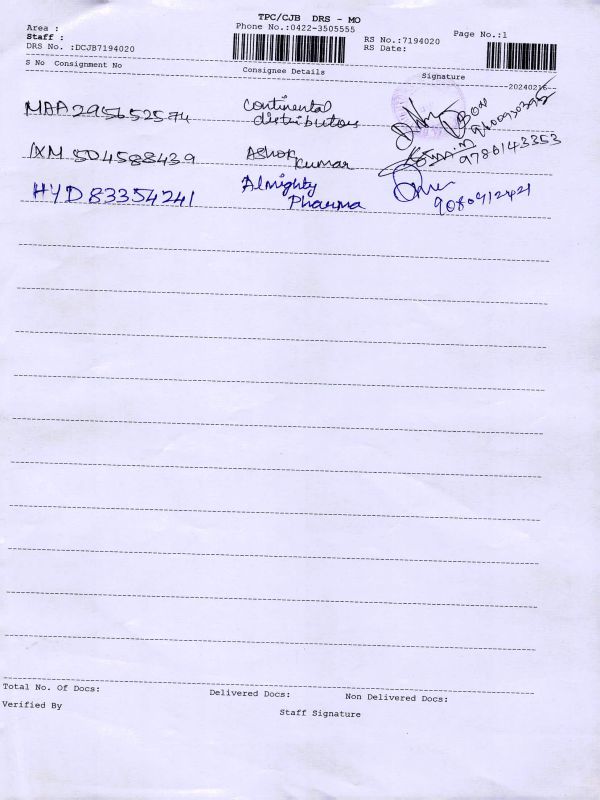 TPC/CJB DRS - MO
Area :
Phone No.:0422-3505555
Staff :
RS No.:7194020
Page No.:1
DRS No. :DCJB7194020
RS Date:
S No Consignment No
Consignee Details
Signature
20240216
MAA295652574
Continental
distributors
IXM 504588439
Ashok
Kumar
9786143353
HYD83354241
Almighty
Pharma
9080912421
Total No. Of Docs:
Delivered Docs:
Non Delivered Docs:
Verified By
Staff Signature